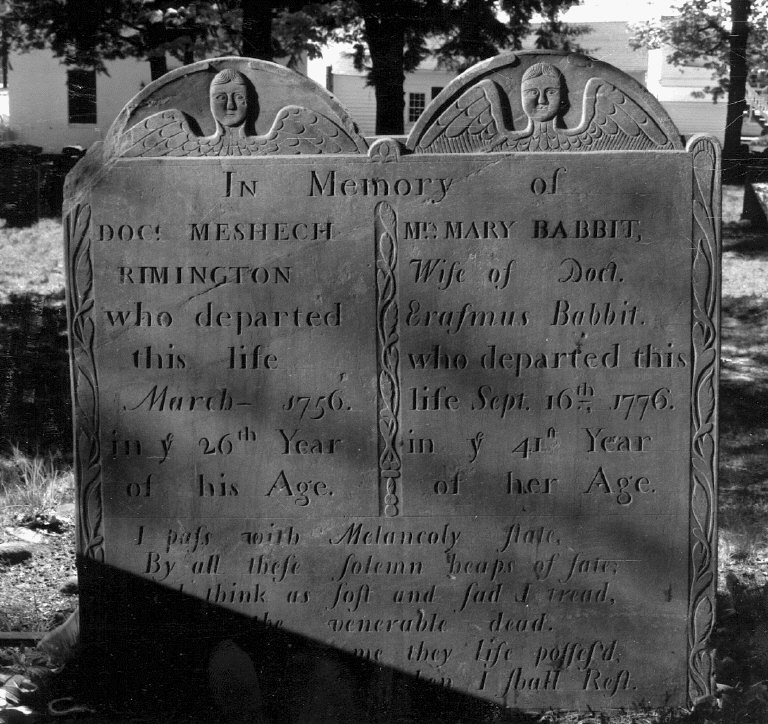 In Memory of
DOCt. MESHECH
RIMINGTON
who departed
this life
March - 1756.
in ye 26th Year
of his Age.
Mrs. MARY BABBIT,
Wife of Doct.
Eraſmus Babbit.
who departed this
life Sept. 16th 1776.
in ye 41ſt Year
of her Age.
I paſs with Melancoly ſtate,
By all theſe ſolemn heaps of fate;
think as ſoft and ſad I tread,
the venerable dead.
me they life poſſeſ'd,
I ſhall Reſt.